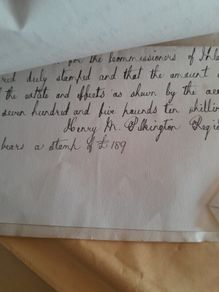 for the Commissioners of Inla
red duly stamped and that the amount o
f the estate and effects as shown by the acc
seven hundred and five pounds ten shillin
Henry M. Pilkington Regis
bears a stamp of £189